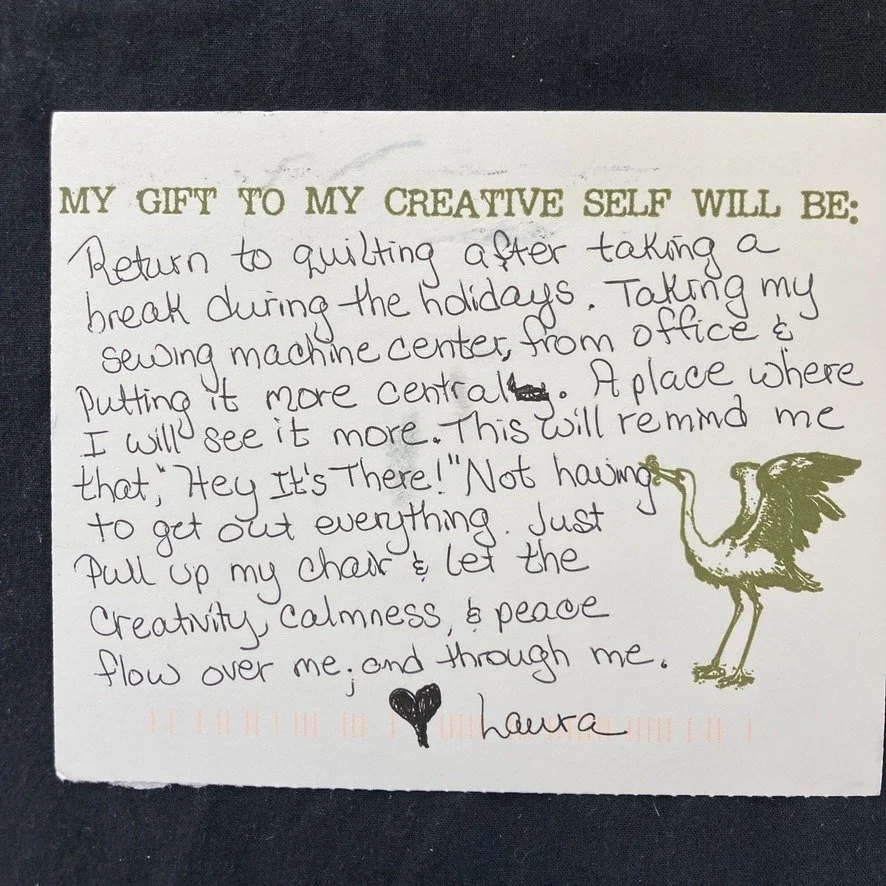 MY GIFT TO MY CREATIVE SELF WILL BE:
Return to quilting after taking a
break during the holidays. Taking my
sewing machine center, from office &
putting it more central. A place where
I will see it more. This will remind me
that, "Hey It's There!" Not having
to get out everything. Just
Pull up my chair & let the
Creativity, calmness, & peace
flow over me; and through me.
♥ Laura